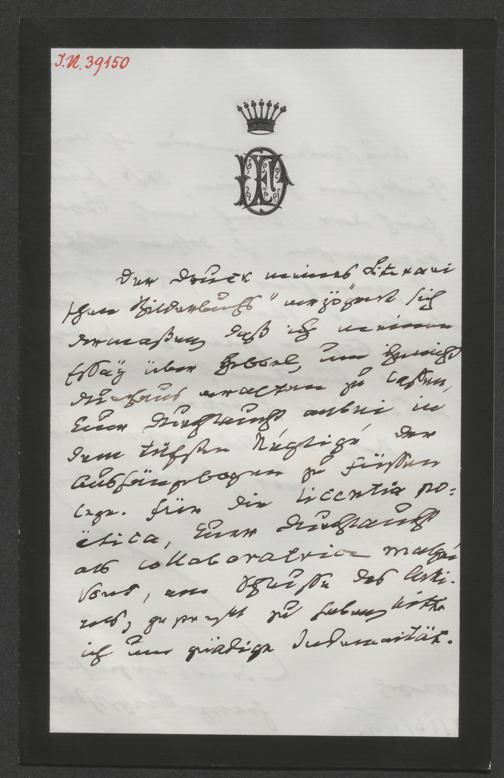 I.N. 39150
Der Druck meines Literari
schen Bilderbuchs" verzögert sich
dermaßen, daß ich meinen
Essay über Hebbel, um ihn nicht
durchaus veralten zu lassen,
Euer Durchlaucht anbei in
dem tiefsten Négligé, der
Aushängebogen zu Füßen
lege. Für die licentia po=
etica, Euer Durchlaucht
als collaboratrice malgré
vous, am Schlusse des Arti-
kels, gepreßt zu haben, bitte
ich um gnädige Indemnität.